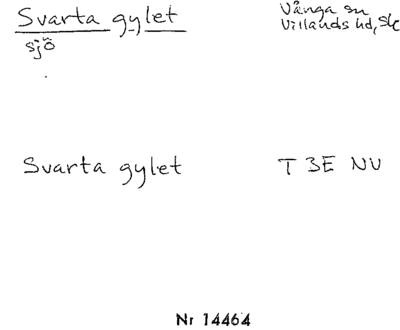 Svarta gylet
sjö
Vånga sn
Villands hd, Sk
Svarta gylet T 3E NV
Nr 14464